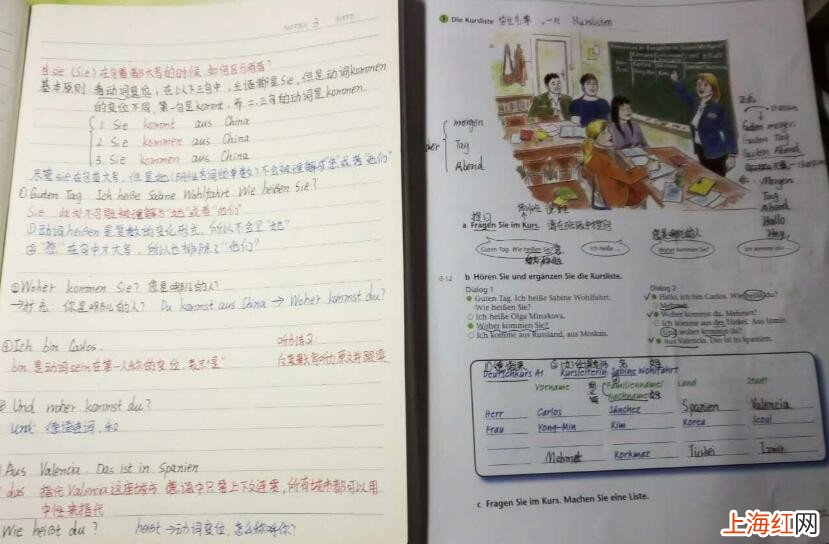 NOTES 3 DATE
当sie (Sie)在句首都大写的时候,如何区分两者?
基本原则:看动词变位,在以下三句中,主语都是Sie,但是动词kommen
的变位不同,第一句是kommt,第二、三句的动词是kommen.
1. Sie kommt aus China
2. Sie kommen aus China
3. Sie kommen aus China
①Guten Tag. Ich heiße Sabine Wohlfahrt. Wie heißen Sie?
Sie 此处不可能被理解为"她"或者"他们"
①动词heißen是复数的变化形式,所以不会是"她"
②"您"在句中才大写,所以也排除了"他们"
Woher kommen Sie? 您是哪儿的人?
→扩充:你是哪儿的人? Du kommst aus China → Woher kommst du?
Ich bin Carlos.
bin 是动词sein在第一人称的变位,表示"是"
听力练习
Und woher kommst du?
und 连词,和
Aus Valencia. Das ist in Spanien
das 指代Valencia这座城市 德语中只要上下文连贯,所有城市都可以用
中性来指代
Wie heißt du? heißt→动词变位,怎么称呼你?
1 Die Kursliste 学生名单, -n Kurslisten
morgen
Tag
Abend
Guten morgen
Guten Tag
Guten Abend
Morgen
Tag
Abend
Hallo
Hey
提问
a Fragen Sie im Kurs. 请在班级中提问
您是哪儿的人
Guten Tag. Wie heißen Sie?
Ich heiße ...
Woher kommen Sie?
Ich komme aus ...
1.2 b Hören Sie und ergänzen Sie die Kursliste.
Dialog 1
Guten Tag. Ich heiße Sabine Wohlfahrt.
Wie heißen Sie?
Ich heiße Olga Minakova.
Woher kommen Sie?
Ich komme aus Russland, aus Moskau.
Dialog 2
Hallo, ich bin Carlos. Wie heißt du?
Mehmet.
Woher kommst du, Mehmet?
Ich komme aus der Türkei. Aus Izmir.
Und woher kommst du?
Aus Valencia. Das ist in Spanien.
Deutschkurs A1 Kursleiterin: Sabine Wohlfahrt
Vorname Familienname/ Land Stadt
Nachname 姓
Herr Carlos Sánchez Spanien Valencia
Frau Yong-Min Kim Korea Seoul
Mehmet Korkmaz Türkei Izmir
c Fragen Sie im Kurs. Machen Sie eine Liste.
上海红网